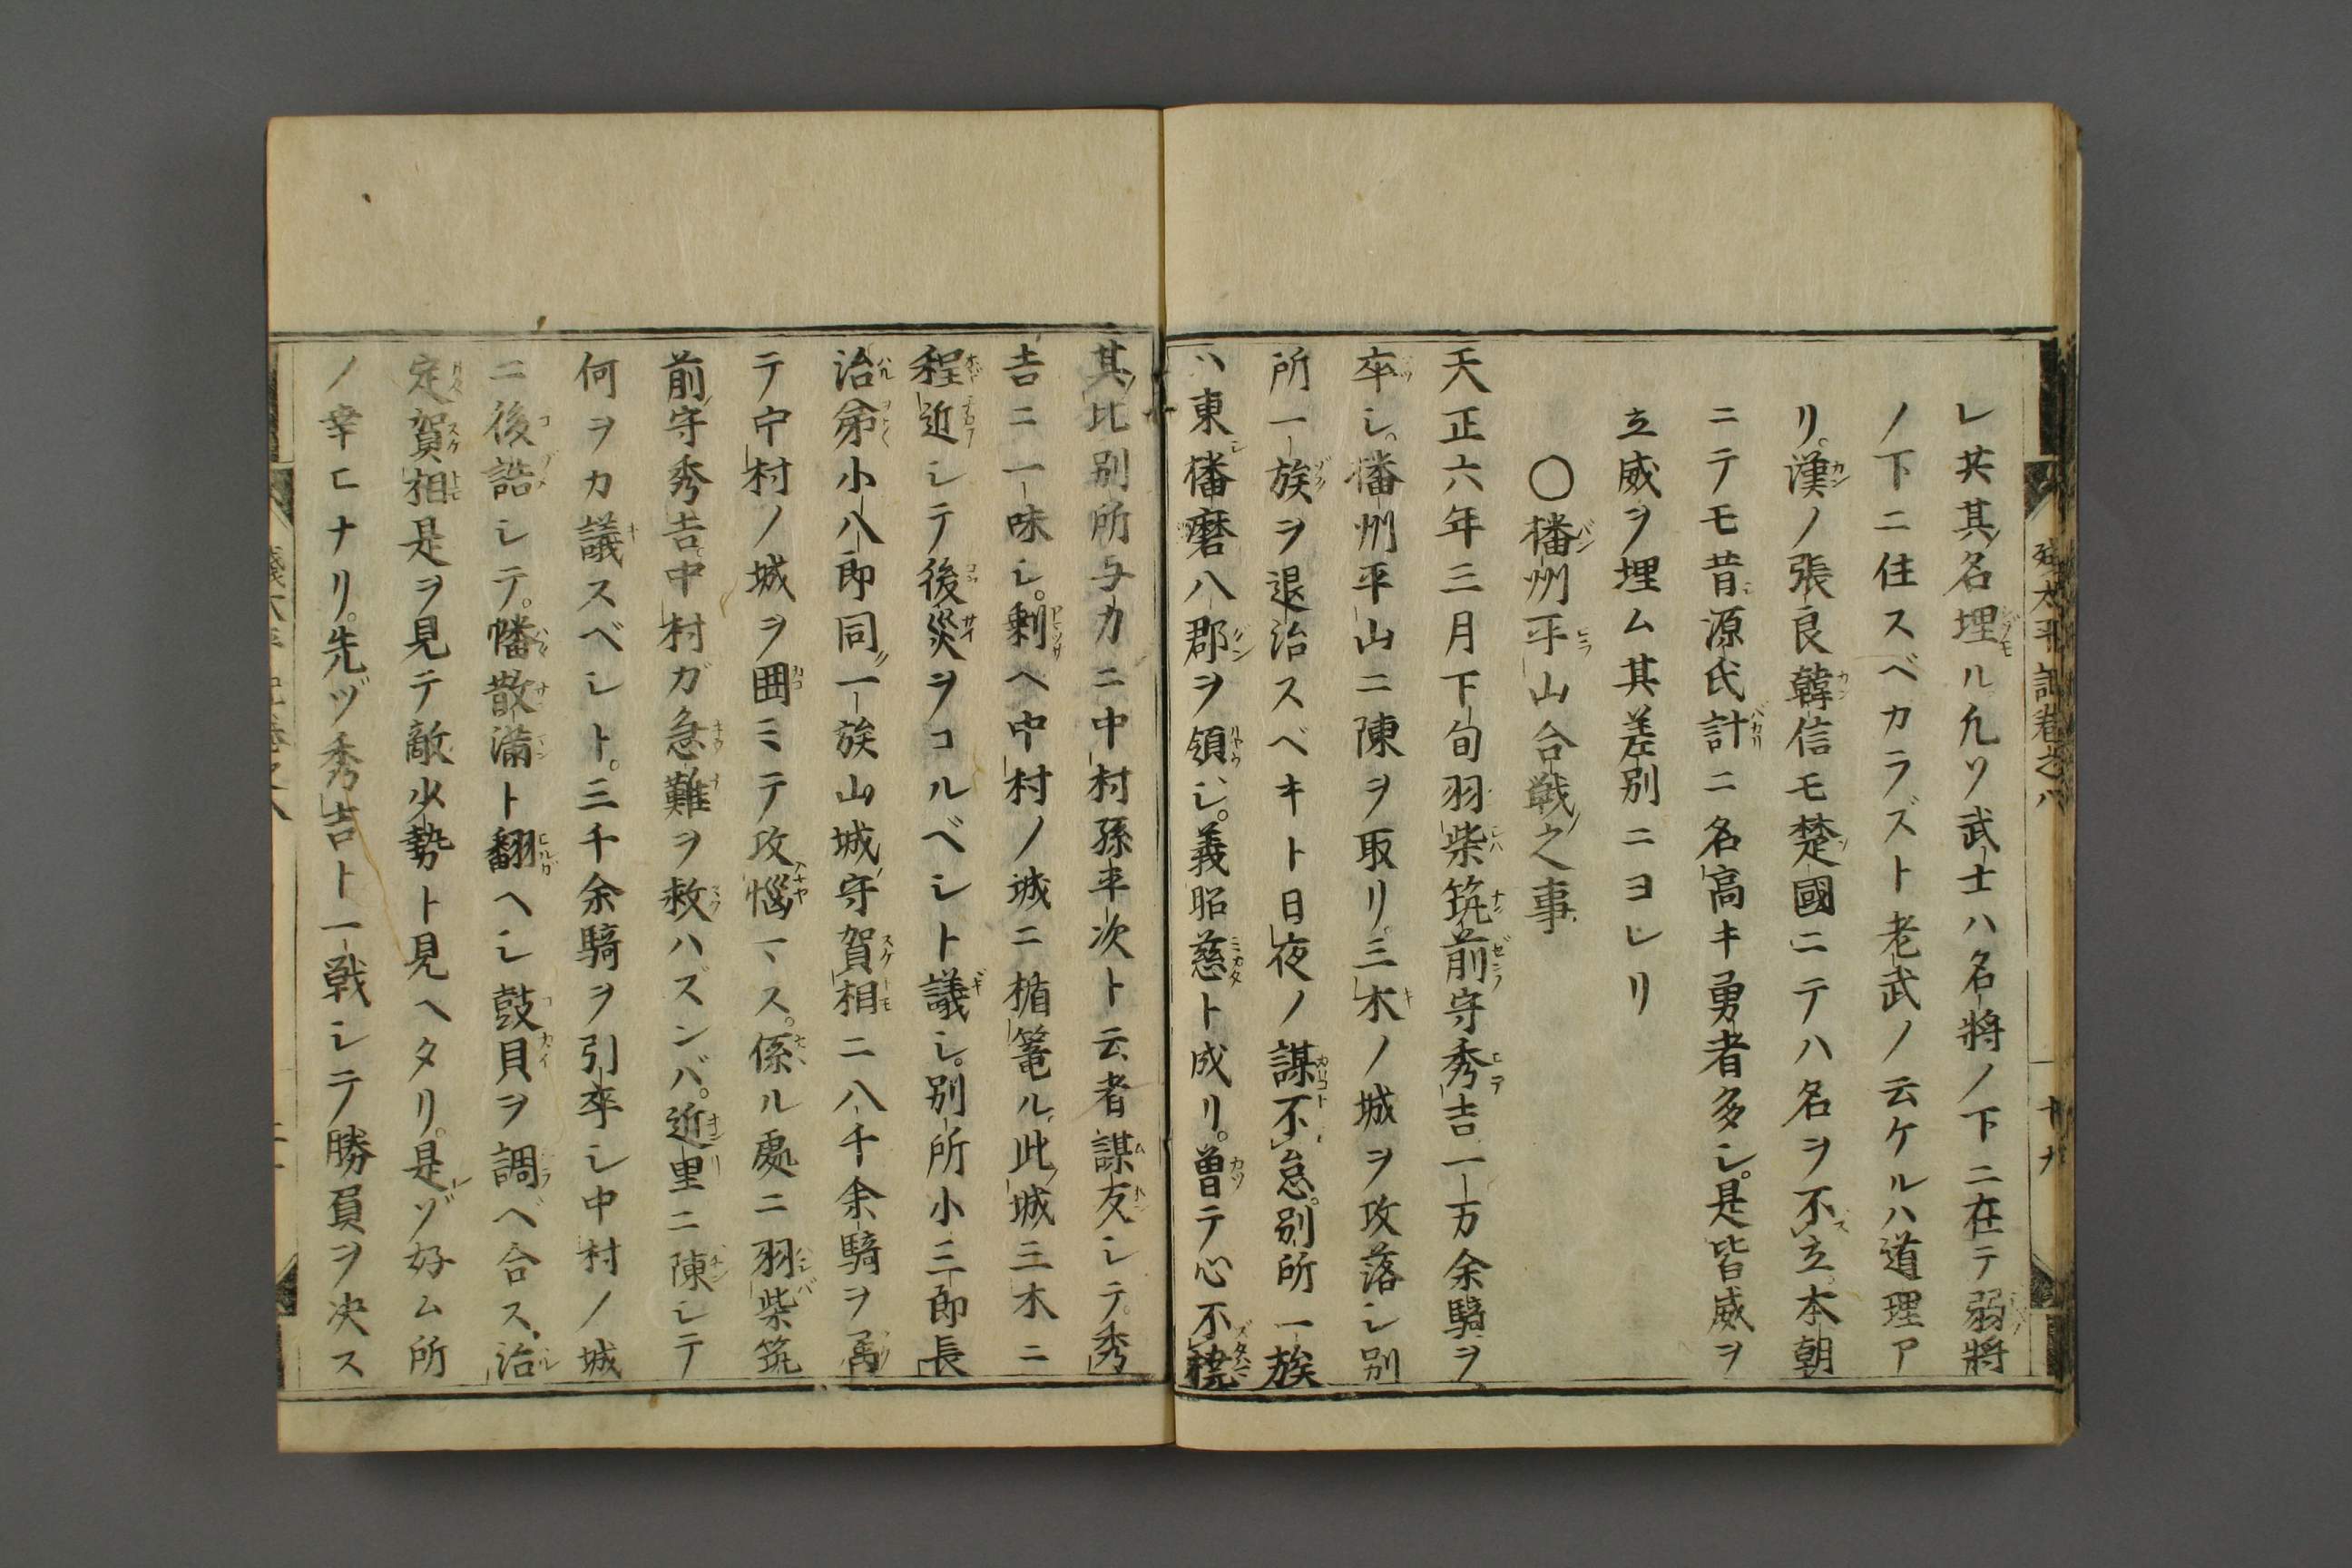 レ共其名埋ル凢ソ武士ハ名將ノ下ニ在テ弱將
ノ下ニ住スベカラズト老武ノ云ケルハ道理ア
リ。漢ノ張良韓信モ楚國ニテハ名ヲ不立。本朝
ニテモ昔源氏計ニ名高キ勇者多シ。是皆威ヲ
立威ヲ埋ム其差別ニヨレリ
〇播州平山合戦之事
天正六年三月下旬羽柴筑前守秀吉一万余騎ヲ
卒シ。播州平山ニ陳ヲ取リ。三木ノ城ヲ攻落シ別
所一族ヲ退治スベキト日夜ノ謀不怠。別所一族
ハ東播磨八郡ヲ領シ。義昭慈ト成リ。曽テ心不撓
其比別所与力ニ中村孫平次ト云者謀友シテ。秀
吉ニ一味シ。剰ヘ中村ノ城ニ楯篭ル。此城三木ニ
程近シテ後災ヲコルベシト議シ。別所小三郎長
治弟小八郎同一族山城守賀相二八千余騎ヲ属
テ中村ノ城ヲ囲ミテ攻惱マス。係ル處ニ羽柴筑
前守秀吉。中村ガ急難ヲ救ハズンバ。近里ニ陳シテ
何ヲカ議スベシト。三千余騎ヲ引卒シ中村ノ城
ニ後詰シテ。幡散満ト翻ヘシ鼓貝ヲ調ベ合ス。治
定賀相是ヲ見テ敵少勢ト見ヘタリ。是ゾ好ム所
ノ幸ヒナリ。先ヅ秀吉ト一戦シテ勝負ヲ決ス